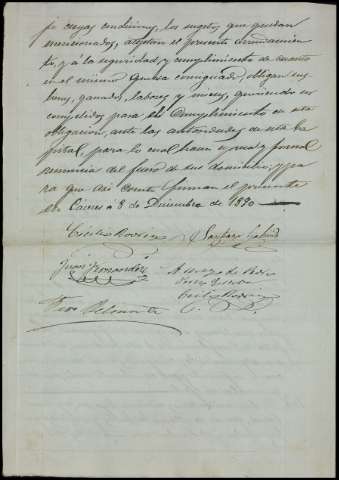 jo cuyas condiciones, los sugetos que quedan
mencionados, aceptan el presente arrendamien
to, y á la seguridad, y cumplimiento de cuanto
en el mismo queda consignado, obligan sus
bienes, ganados, labores y mieses, queriendo ser
compelidos para el cumplimiento de esta
obligacion, ante las autoridades de esta Ca
pital, para lo cual hacen expresa y formal
renuncia del fuero de sus domicilios, y pa
ra que asi conste firman el presente
en Cáceres á 8 de Diciembre de 1890
Santiago
Juan Fernandez
A ruego de
Fran Belmonte